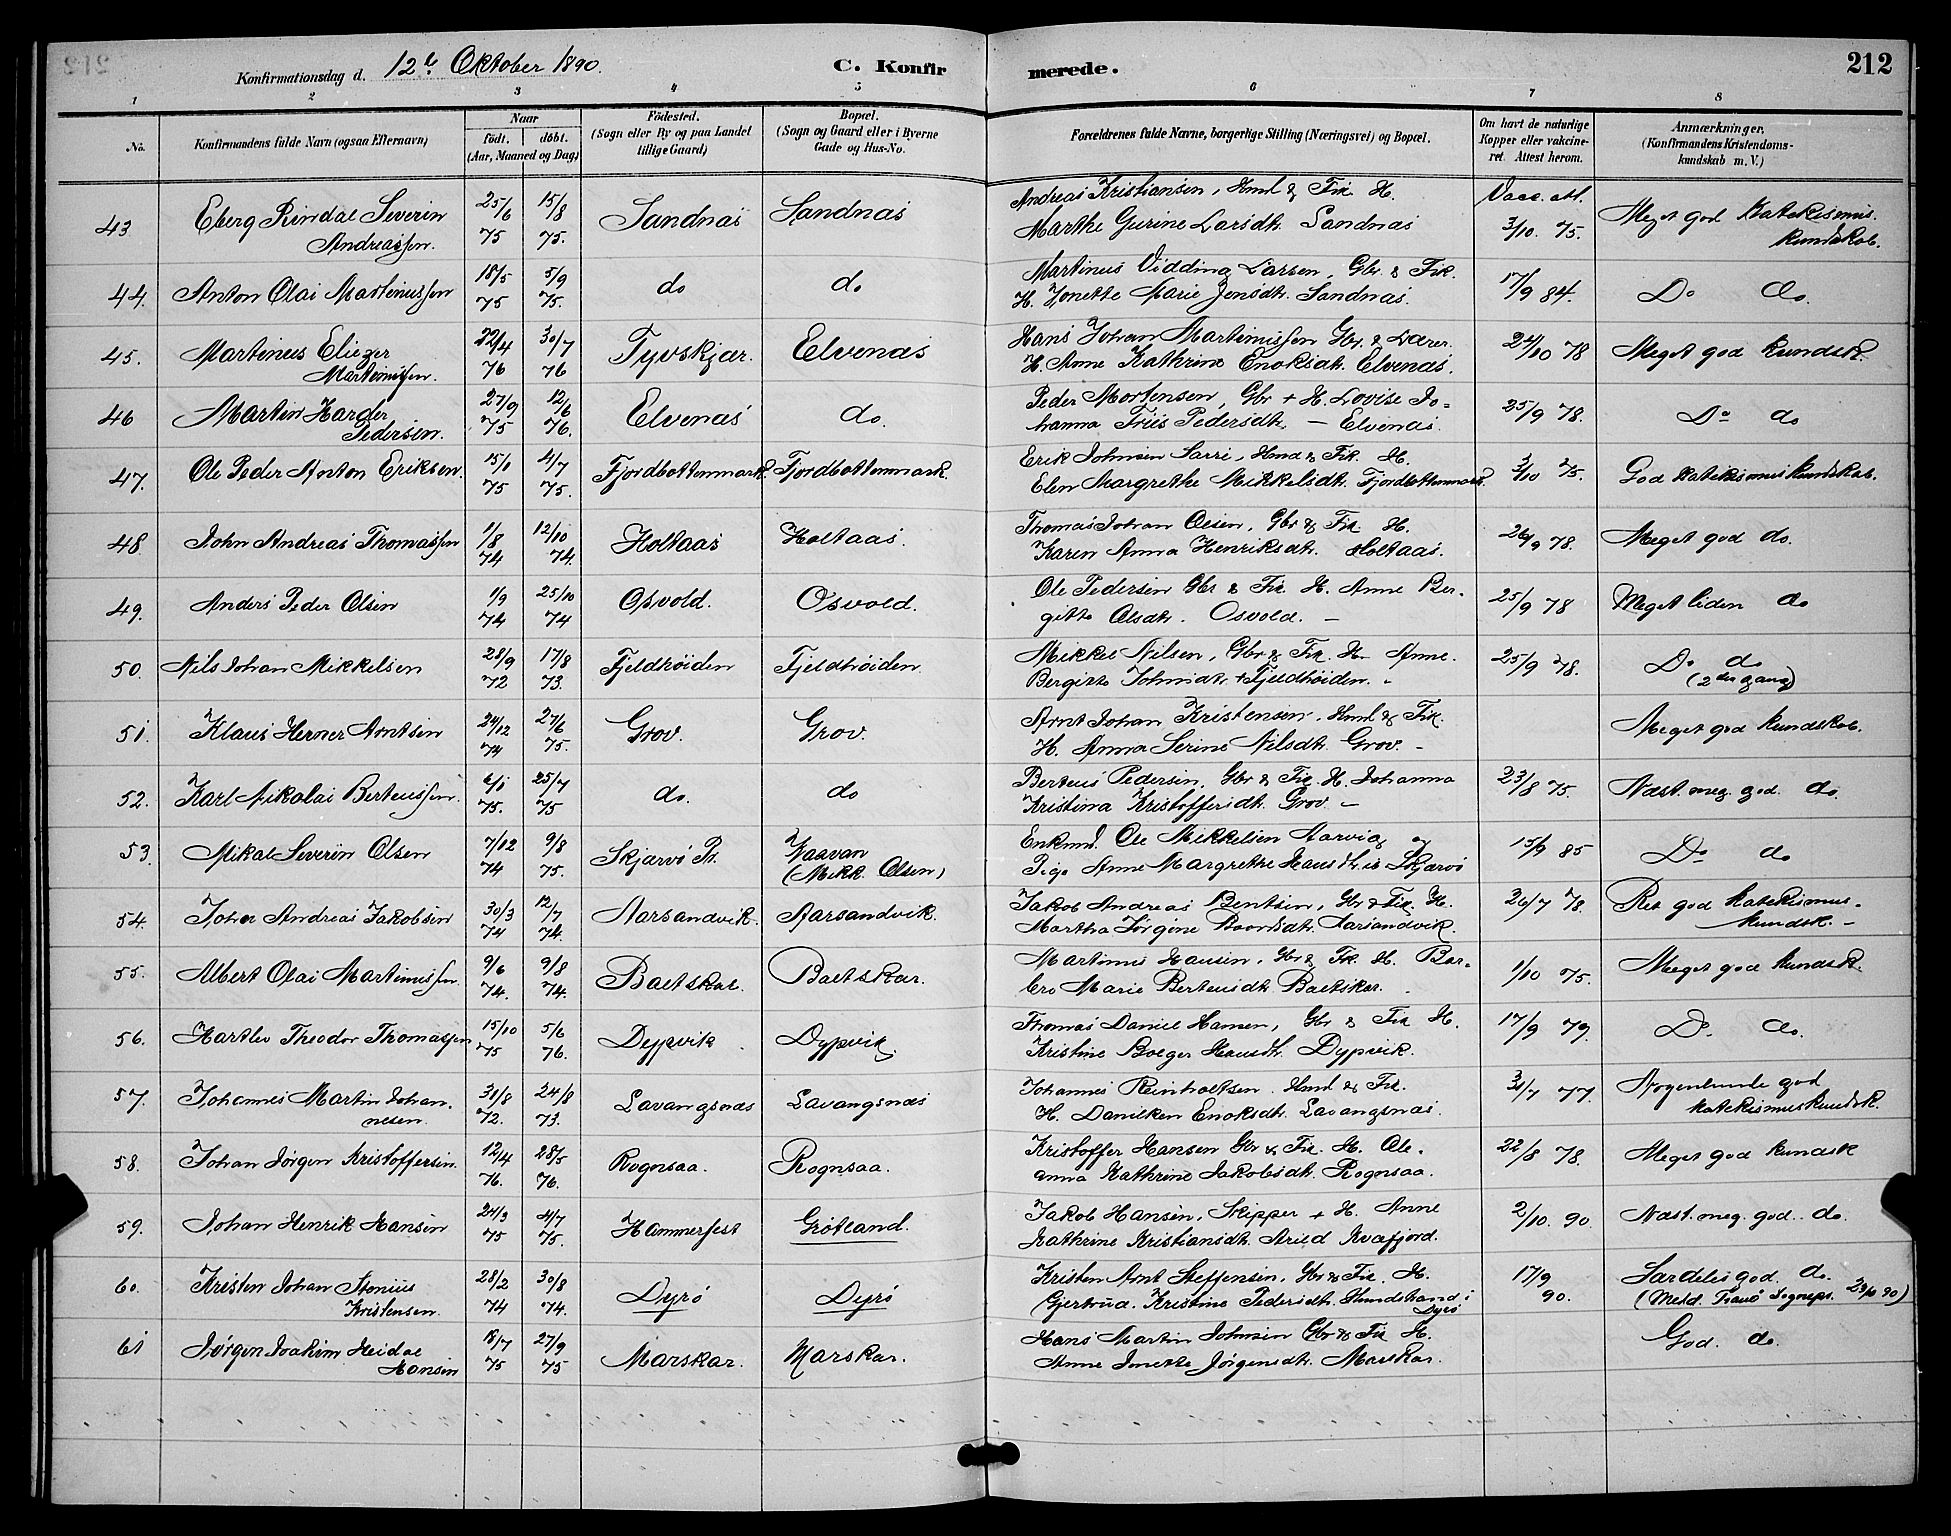 Konfirmationsdag d. 12te Oktober 1890.
C. Konfirmerede.
212
1 2 3 4 5 6 7 8
No. Konfirmandens fulde Navn (ogsaa Efternavn) Naar født. døbt. (Aar, Maaned og Dag) Fødested. (Sogn eller By og paa Landet tillige Gaard) Bopæl. (Sogn og Gaard eller i Byerne Gade og Hus-No. Forældrenes fulde Navne, borgerlige Stilling (Næringsvei) og Bopæl. Om havt de naturlige Kopper eller vakcineret. Attest herom. Anmærkninger. (Konfirmandens Kristendomskundskab m. V.)
43 Eberg Rindal Severin 25/6 15/8 Sandnas Sandnas Andreas Kristiansen, Hmd & Fisk. H. Vacc. att. Meget god Katekismus-
Andreassen. 75 75. Marthe Gurine Larsdtr. Sandnas 3/10. 75. kundskab.
44. Anton Olai Martinussen 18/5 5/9 do do Martinus Vidding Larsen, Gbr. & Fisk. 17/9 84. Do do.
75 75. H. Jonette Marie Jensdtr. Sandnas.
45. Martinus Eliezer 22/4 30/7 Tyvskjær. Elvenas Hans Johan Martinussen Gbr. & Lærer. 24/10 78 Meget god kundsk.
Martinussen. 76 76 H. Anne Kathrine Enoksdtr. Elvenas.
46 Martin Harder 27/9 12/6 Elvenas do. Peder Mortensen, Gbr + H. Lovise Jo= 25/9 78. Do do
Pedersen. 75 76. hanna Friis Pedersdtr, — Elvenas.
47. Ole Peder Anton Eriksen. 15/1 4/7 Fjordbottenmark. Fjordbottenmark. Erik Johnsen Sarri, Hmd & Fisk. H. 3/10 75. God Katekismuskundskab.
75 75. Elen Margrethe Mikkelsdtr. Fjordbottenmark.
48. John Andreas Thomassen 1/8 12/10 Holtaas Holtaas. Thomas Johan Olsen, Gbr & Fisk H. 26/9 78. Meget god do.
74 74. Karen Anna Henriksdtr. Holtaas.
49. Anders Peder Olsen 1/9 25/10 Osvold. Osvold. Ole Pedersen Gbr & Fisk H. Anne Ber- 25/9 78 Meget liden do
74 74 gitte Olsdtr. Osvold. —
50. Nils Johan Mikkelsen 28/9 17/8 Fjeldhöiden Fjeldhöiden. Mikkel Nilsen, Gbr & Fisk H. Anne. 25/9 78. Do do
72 73. Bergitte Johnsdtr. Fjeldhöiden. (2den gang)
51. Klaus Herner Arntsen 24/12 27/6 Grov. Grov. Arnt Johan Kristensen, Hmd & Fisk. Meget god kundskab.
74 75. H. Anna Serine Nilsdtr. Grov. —
52. Karl Nikolai Berteussen. 6/1 25/7 do. do Berteus Pedersen, Gbr & Fisk. H. Johanna 23/8 75. Næst. meg. god. do.
75. 75 Kristina Kristoffersdtr. Grov. —
53. Mikal Severin Olsen 7/12 9/8 Skjærvö Pr. Kaavan Enkmd. Ole Mikkelsen Aarvig og 15/9 85 Do do
74 75. (Mikk. Olsen) Pige Anne Margrethe Hansdtr. Skjærvö
54. Johan Andreas Jakobsen 30/3 12/7 Aarsandvik. Aarsandvik. Jakob Andreas Bentsen, Gbr & Fisk. H. 26/7 78. Ret god Katekismus-
74 74. Martha Jørgine Baardsdtr. Aarsandvik. kundsk. —
55. Albert Olai Martinussen 9/6 9/8 Baltskar. Baltskar. Martinus Hansen, Gbr & Fisk. H. Bar- 1/10 75. Meget god kundsk.
74. 74. bro Marie Berteusdtr. Baltskar.
56. Hartlev Theodor Thomassen 15/10 5/6 Dypvik Dypvik. Thomas Daniel Hansen, Gbr & Fisk H. 17/9 79. Do do.
75 76. Kristine Bolger Hansdtr. Dypvik.
57. Johannes Martin Johan- 31/8 24/8 Lavangsnes Lavangsnas Johannes Reinholtsen. Hmd & Fisk. 31/7 77. Nogenlunde god
nesen. 72. 73. H. Danilken Enoksdtr. Lavangsnas. Katekismuskundsk.
58. Johan Jörgen Kristoffersen. 12/4 28/5 Rognsaa. Rognsaa. Kristoffer Hansen Gbr & Fisk. H. Ole- 22/8 78. Meget god kundsk
76. 76. anna Kathrine Jakobsdtr. Rognsaa.
59. Johan Henrik Hansen 24/3 4/7 Hammerfest Grötland. Jakob Hansen, Skipper + H. Anne 2/10. 90. Næst. meg. god. do.
75 75. Kathrine Kristiansdtr. Aried Kvæfjord.
60. Kristen Johan Stenius 28/2 30/8 Dyrö Dyrö Kristen Arnt Steffensen, Gbr & Fisk. H. 17/9 Særdeles god. do.
Kristensen. 74 74. Gjertrud. Kristine Pedersdtr. Hundstrand i Dyrö 90. (Meld. Tranö Sognepr. 23/10 90)
61 Jörgen Joakim Heidal 18/7 27/9 Marskar. Marskar. Hans Martin Johnsen Gbr & Fisk H. God. do.
Hansen 75 75 Anne Jonette Jörgensdtr. Marskar.